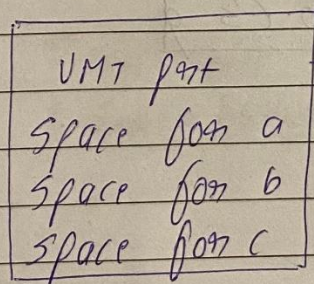 VMT Pnt
Space for a
Space for b
Space for c